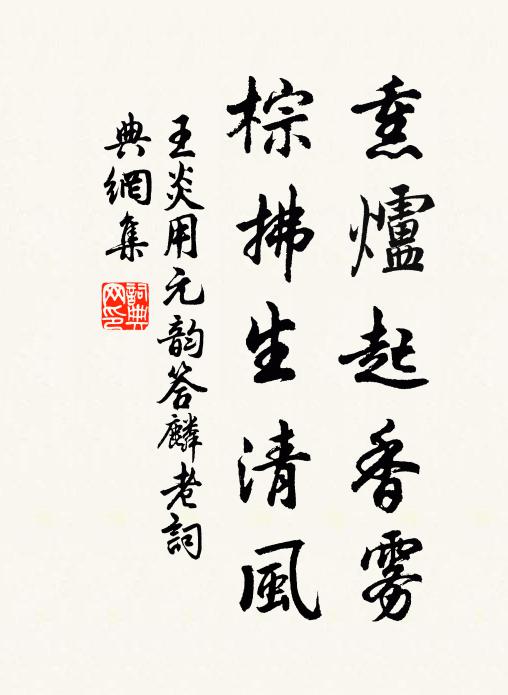 熏爐起香雾
棕拂生清風
王炎用元韵答麟老詞
典網集
詞典网印